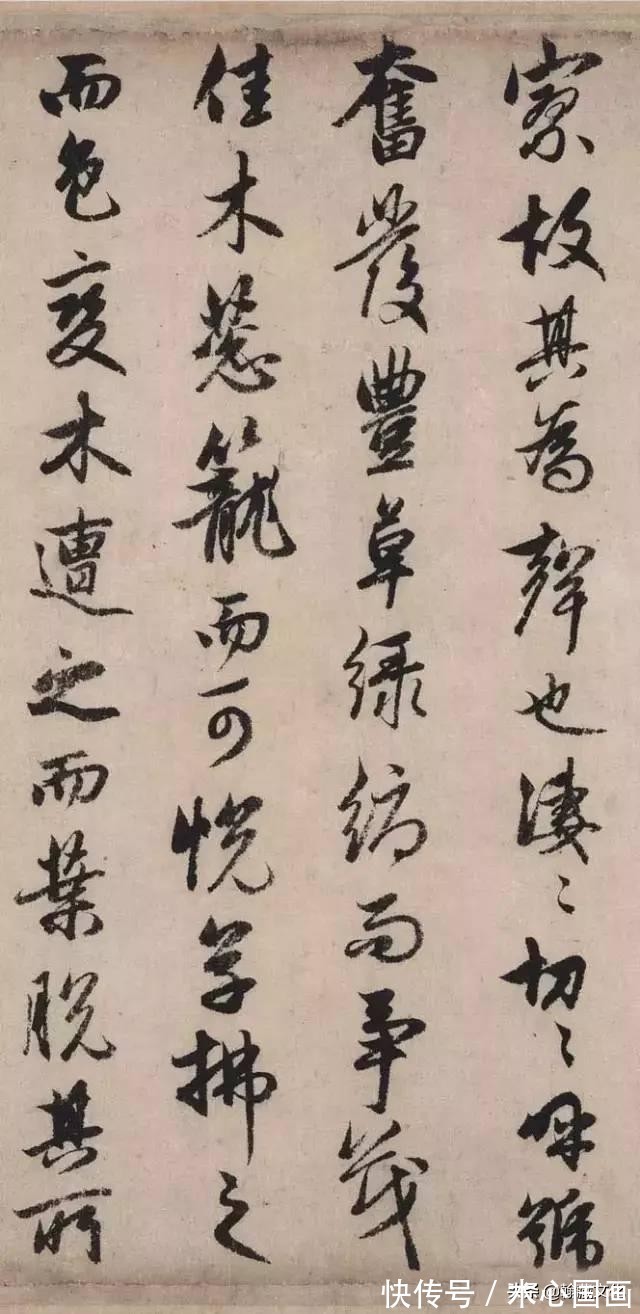 寥故其為聲也淒〻切〻呼號
奮發豐草綠縟而爭茂
佳木葱籠而可悅草拂之
而色變木遭之而葉脫其所
快传号 / 米心国画